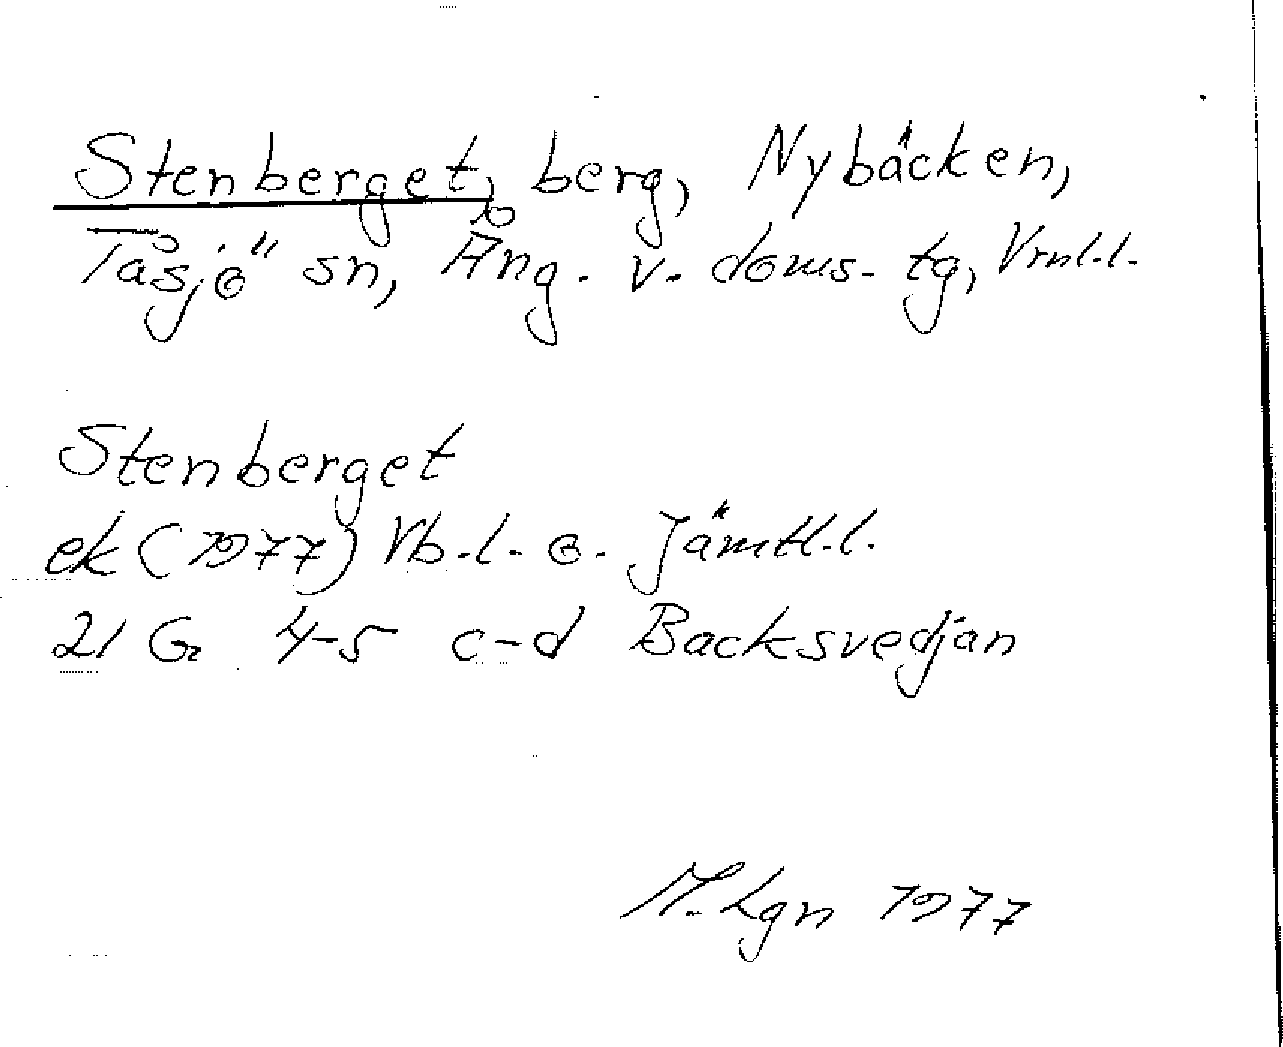 Stenberget, berg, Nybäcken,
Tåsjö sn, Ång. v. doms. tg, Vrnl.l.
Stenberget
ek (1977) Vb.l. o. Jämtl.l.
21 G 4-5 c-d Backsvedjan
M. Lgn 1977